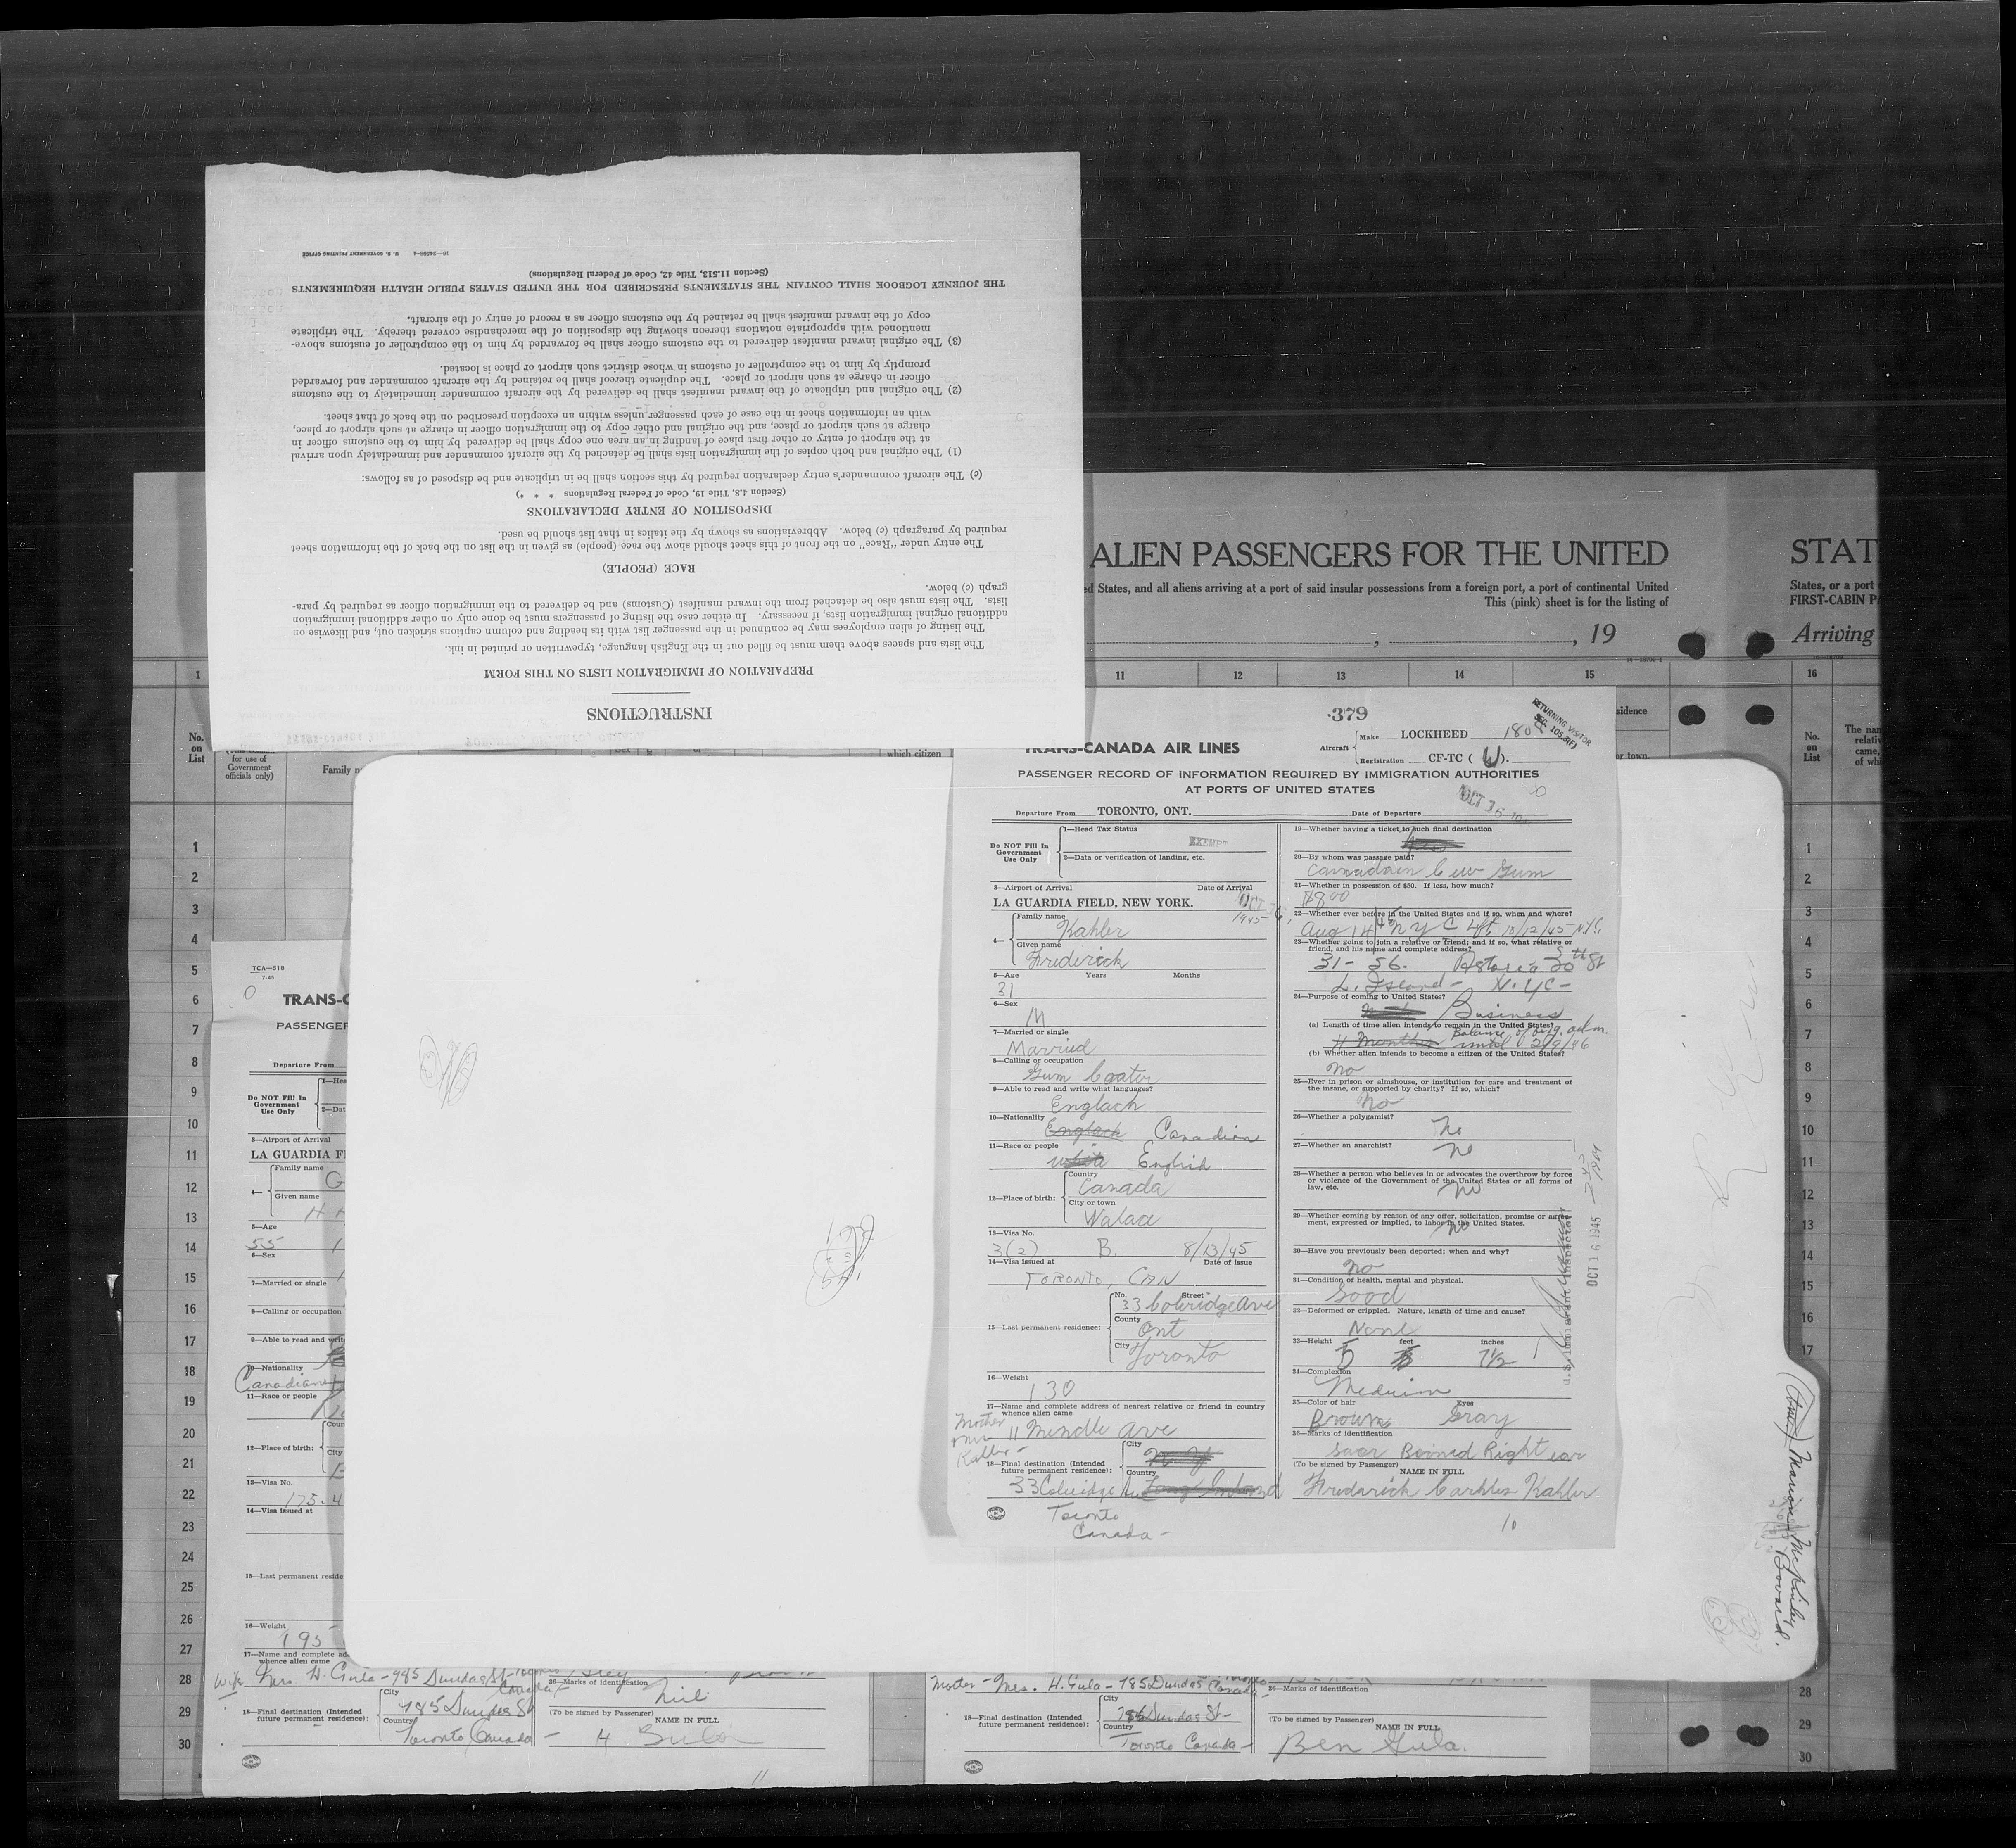 INSTRUCTIONS
PREPARATION OF IMMIGRATION LISTS ON THIS FORM
The lists and spaces above them must be filled out in the English language, typewritten or printed in ink.
The listing of alien employees may be continued in the passenger list with its heading and column captions stricken out, and likewise on
additional original immigration lists, if necessary. In either case the listing of passengers must be done only on other additional immigration
lists. The lists must also be detached from the inward manifest (Customs) and be delivered to the immigration officer as required by para-
graph (c) below.
RACE (PEOPLE)
The entry under "Race" on the front of this sheet should show the race (people) as given in the list on the back of the information sheet
required by paragraph (c) below. Abbreviations as shown by the italics in that list should be used.
DISPOSITION OF ENTRY DECLARATIONS
(Section 4.8, Title 19, Code of Federal Regulations * * *)
(c) The aircraft commander's entry declaration required by this section shall be in triplicate and be disposed of as follows:
(1) The original and both copies of the immigration lists shall be detached by the aircraft commander and immediately upon arrival
at the airport of entry or other first place of landing in an area one copy shall be delivered by him to the customs officer in
charge at such airport or place, and the original and other copy to the immigration officer in charge at such airport or place,
with an information sheet in the case of each passenger unless within an exception prescribed on the back of that sheet.
(2) The original and triplicate of the inward manifest shall be delivered by the aircraft commander immediately to the customs
officer in charge at such airport or place. The duplicate thereof shall be retained by the aircraft commander and forwarded
promptly by him to the comptroller of customs in whose district such airport or place is located.
(3) The original inward manifest delivered to the customs officer shall be forwarded by him to the comptroller of customs above-
mentioned with appropriate notations thereon showing the disposition of the merchandise covered thereby. The triplicate
copy of the inward manifest shall be retained by the customs officer as a record of entry of the aircraft.
THE JOURNEY LOGBOOK SHALL CONTAIN THE STATEMENTS PRESCRIBED FOR THE UNITED STATES PUBLIC HEALTH REQUIREMENTS
(Section 11.513, Title 42, Code of Federal Regulations)
U. S. GOVERNMENT PRINTING OFFICE
ALIEN PASSENGERS FOR THE UNITED
STAT
ed States, and all aliens arriving at a port of said insular possessions from a foreign port, a port of continental United
States, or a port
This (pink) sheet is for the listing of
FIRST-CABIN PA
, 19
Arriving
1 11 12 13 14 15 16
No. on List
for use of Government officials only)
Family n
which citizen
sidence
or town.
No. on List
The nam
relativ
came,
of whi
379
TRANS-CANADA AIR LINES
Aircraft
Make LOCKHEED 180
Registration CF-TC ( W ).
RETURNING VISITOR
PASSENGER RECORD OF INFORMATION REQUIRED BY IMMIGRATION AUTHORITIES
AT PORTS OF UNITED STATES
Departure From TORONTO, ONT. Date of Departure OCT 16
Do NOT Fill In
Government
Use Only
1—Head Tax Status EXEMPT
2—Data or verification of landing, etc.
3—Airport of Arrival Date of Arrival
LA GUARDIA FIELD, NEW YORK. OCT 1945
4— Family name Kahler
Given name Frederick
5—Age Years Months
31
6—Sex
M
7—Married or single
Married
8—Calling or occupation
Gum Coater
9—Able to read and write what languages?
Englach
10—Nationality
Englach Canadian
11—Race or people
white English
12—Place of birth: Country Canada
City or town Walace
13—Visa No.
3(2) B. 8/13/45
14—Visa issued at Date of issue
TORONTO, CAN
15—Last permanent residence: No. Street
33 Coleridge Ave
County Ont
City Toronto
16—Weight
130
17—Name and complete address of nearest relative or friend in country
whence alien came
Mother
11 Mendle Ave
18—Final destination (Intended
future permanent residence):
City
Country
33 Coleridge Ave Long Island
Toronto
Canada -
19—Whether having a ticket to such final destination
20—By whom was passage paid?
Canadain Cew Gum
21—Whether in possession of $50. If less, how much?
$800
22—Whether ever before in the United States and if so, when and where?
Aug 14 45 N Y C Left 10/12/45 NYC
23—Whether going to join a relative or friend; and if so, what relative or
friend, and his name and complete address?
31 - 56. Astoria 30th St
L. Island - N.YC -
24—Purpose of coming to United States?
Business
(a) Length of time alien intends to remain in the United States?
4 Months Balance of orig. adm. until 2/9/46
(b) Whether alien intends to become a citizen of the United States?
no
25—Ever in prison or almshouse, or institution for care and treatment of
the insane, or supported by charity? If so, which?
no
26—Whether a polygamist?
No
27—Whether an anarchist?
no
28—Whether a person who believes in or advocates the overthrow by force
or violence of the Government of the United States or all forms of
law, etc.
no
29—Whether coming by reason of any offer, solicitation, promise or agree-
ment, expressed or implied, to labor in the United States.
no
30—Have you previously been deported; when and why?
no
31—Condition of health, mental and physical.
Good
32—Deformed or crippled. Nature, length of time and cause?
None
33—Height feet inches
5 7 1/2
34—Complexion
Meduim
35—Color of hair Eyes
Brown Gray
36—Marks of identification
Scar Beinnd Right ear
(To be signed by Passenger)
NAME IN FULL
Fredarick Carhles Kahler
10
OCT 16 1945
TCA—518
7-45
0
TRANS-C
PASSENGER
Departure From
Do NOT Fill In
Government
Use Only
1—Hea
2—Dat
3—Airport of Arrival
LA GUARDIA FI
4— Family name G
Given name H
5—Age
55
6—Sex
7—Married or single
8—Calling or occupation
9—Able to read and write
10—Nationality
Canadian
11—Race or people
12—Place of birth:
13—Visa No.
175.4
14—Visa issued at
15—Last permanent reside
16—Weight
195
17—Name and complete ad
whence alien came
Wife Mrs. H. Gula - 785 Dundas St - Toronto Canada
18—Final destination (Intended
future permanent residence):
City 785 Dundas St
Country Toronto Canada
36—Marks of identification
Nil
(To be signed by Passenger)
NAME IN FULL
H Gula
11
Mother - Mrs. H. Gula - 785 Dundas Toronto Canada
18—Final destination (Intended
future permanent residence):
City 785 Dundas St -
Country Toronto Canada -
36—Marks of identification
(To be signed by Passenger)
NAME IN FULL
Ben Gula.
(Aunt) Marion McKinley Bovaird.